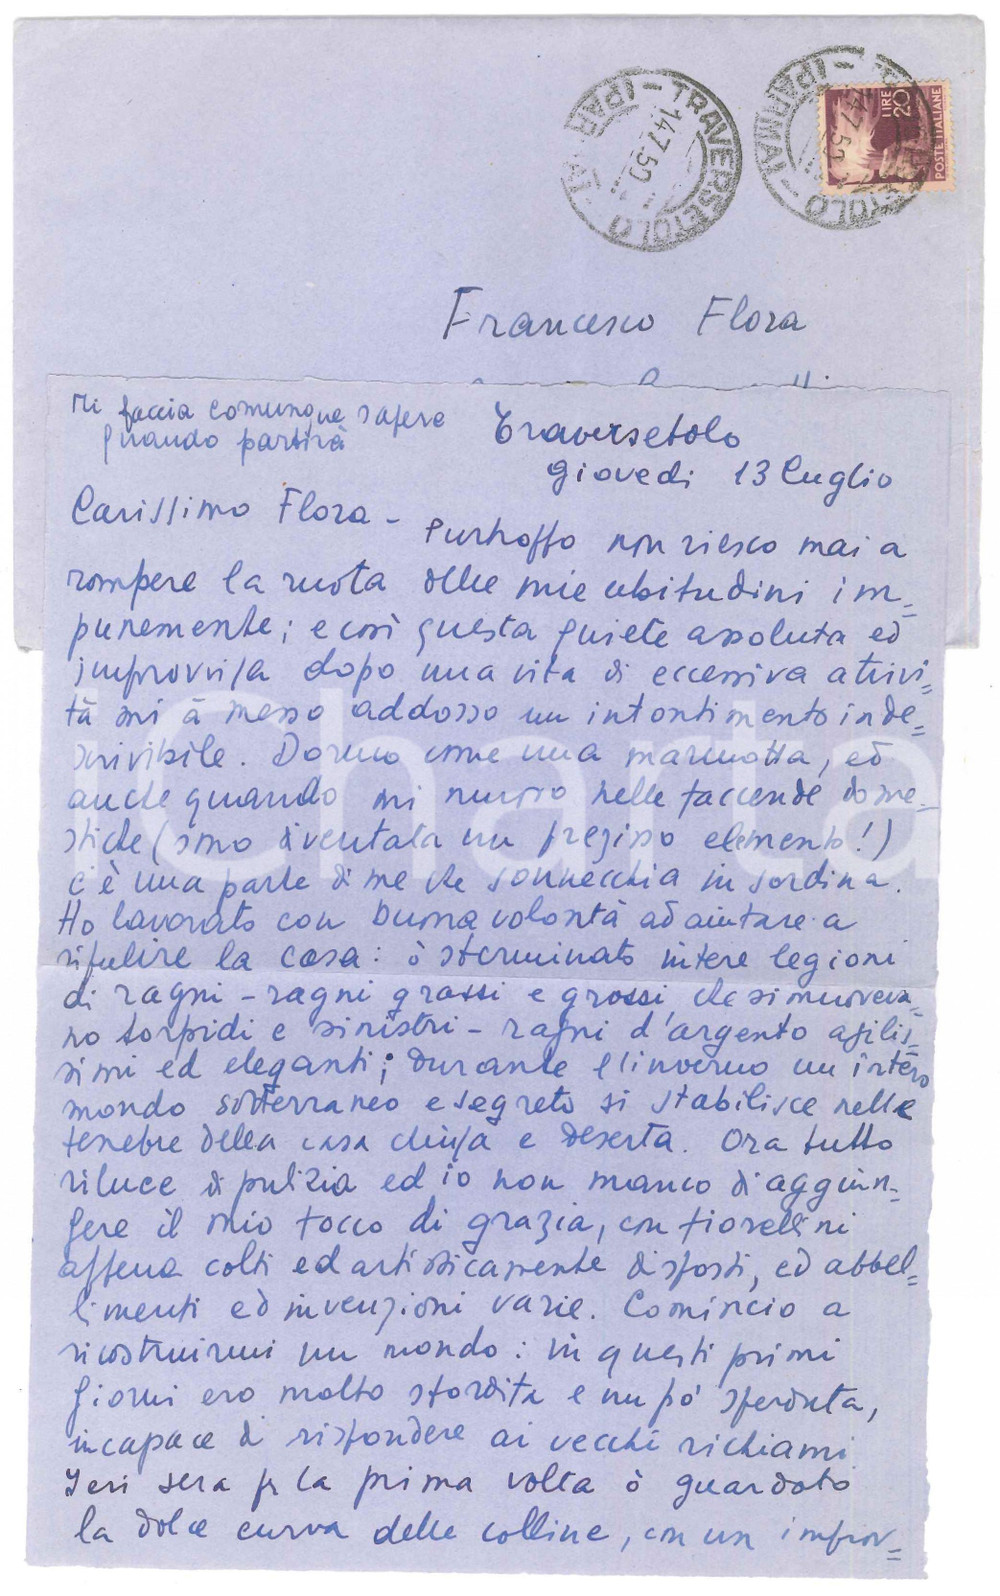 TRAVERSETOLO (PARMA)
14.7.50
TRAVERSETOLO (PARMA)
14.7.50
LIRE 20
POSTE ITALIANE
Francesco Flora
Mi faccia comunque sapere
quando partirà
Traversetolo
Giovedì 13 Luglio
Carissimo Flora - Purtroppo non riesco mai a
rompere la ruota delle mie abitudini im=
punemente; e così questa quiete assoluta ed
improvvisa dopo una vita di eccessiva attivi=
tà mi à messo addosso un intontimento inde=
scrivibile. Dormo come una marmotta, ed
anche quando mi muovo nelle faccende dome=
stiche (sono diventata un prezioso elemento!)
c'è una parte di me che sonnecchia in sordina.
Ho lavorato con buona volontà ad aiutare a
ripulire la casa: ò sterminato intere legioni
di ragni - ragni grassi e grossi che si muoveva=
no torpidi e sinistri - ragni d'argento agilis=
simi ed eleganti; durante l'inverno un intero
mondo sotterraneo e segreto si stabilisce nelle
tenebre della casa chiusa e deserta. Ora tutto
riluce di pulizia ed io non manco di aggiun=
gere il mio tocco di grazia, con fiorellini
appena colti ed artisticamente disposti, ed abbel=
limenti ed invenzioni varie. Comincio a
ricostruirmi un mondo: in questi primi
giorni ero molto stordita e un pò sperduta,
incapace di rispondere ai vecchi richiami.
Ieri sera per la prima volta ò guardato
la dolce curva delle colline, con un improv=
Charta